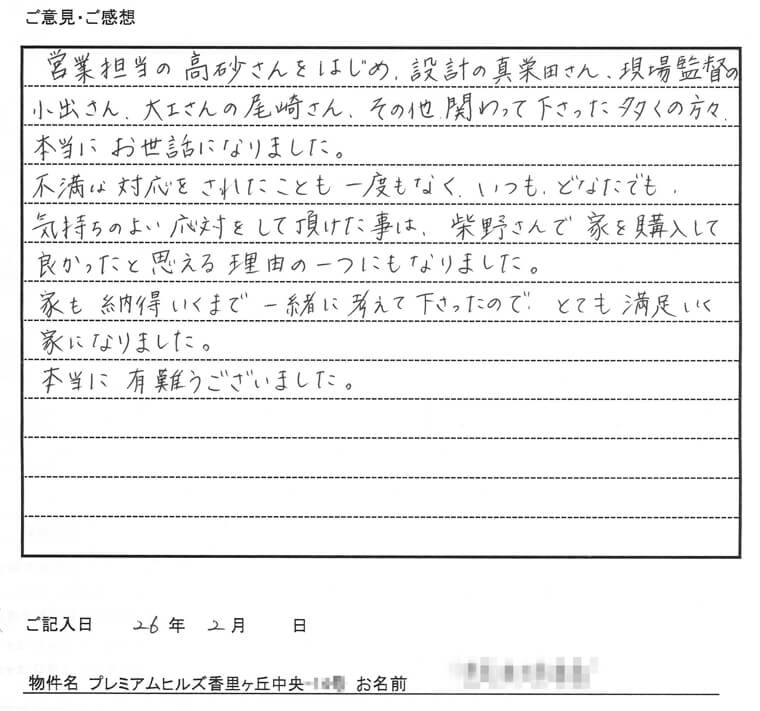 ご意見・ご感想
営業担当の高砂さんをはじめ、設計の真栄田さん、現場監督の
小出さん、大工さんの尾崎さん、その他、関わって下さった多くの方々、
本当にお世話になりました。
不満な対応をされたことも一度もなく、いつも、どなたでも、
気持ちのよい応対をして頂けた事は、柴野さんで家を購入して
良かったと思える理由の一つにもなりました。
家も納得いくまで一緒に考えて下さったので、とても満足いく
家になりました。
本当に有難うございました。
ご記入日 26年 2月 日
物件名 プレミアムヒルズ香里ヶ丘中央 お名前